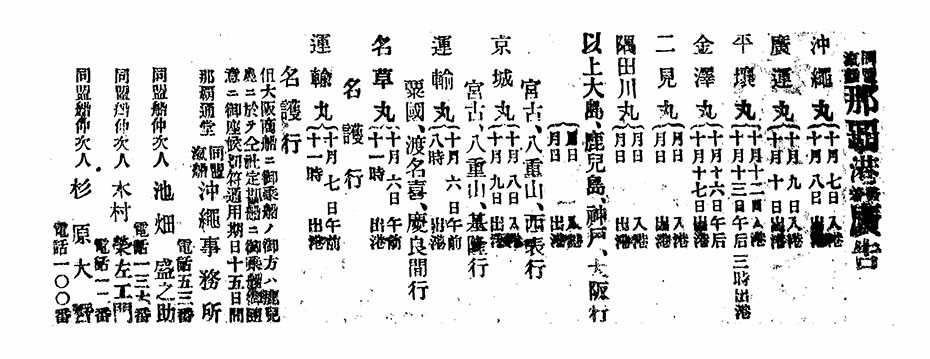 同盟汽船那覇港發着廣告
沖繩丸 十月七日入港 十月八日出港
廣運丸 十月九日入港 十月十日出港
平壤丸 十月十二日入港 十月十三日午后三時出港
金澤丸 十月十六日午后入港 十月十七日出港
二見丸 月日入港 月日出港
隅田川丸 月日入港 月日出港
以上大島、鹿兒島、神戸、大阪行
月日入港 月日出港
宮古、八重山、西表行
京城丸 十月八日入港 十月九日出港
宮古、八重山、基隆行
運輸丸 十月六日午前八時出港
粟國、渡名喜、慶良間行
名草丸 十月六日午前十一時出港
名護行
運輸丸 十月七日午前十一時出港
名護行
但大阪商船ニ御乘船ノ御方ハ鹿兒
島ニ於テ仝社定期船ニ御乘換御隨
意ニ御座候切符通用期日十五日間
那覇通堂 同盟汽船沖繩事務所
電話五三番
同盟船仲次人 池畑盛之助
電話一三六番
同盟船仲次人 木村榮左工門
電話一一番
同盟船仲次人 杉原大
電話一〇〇番